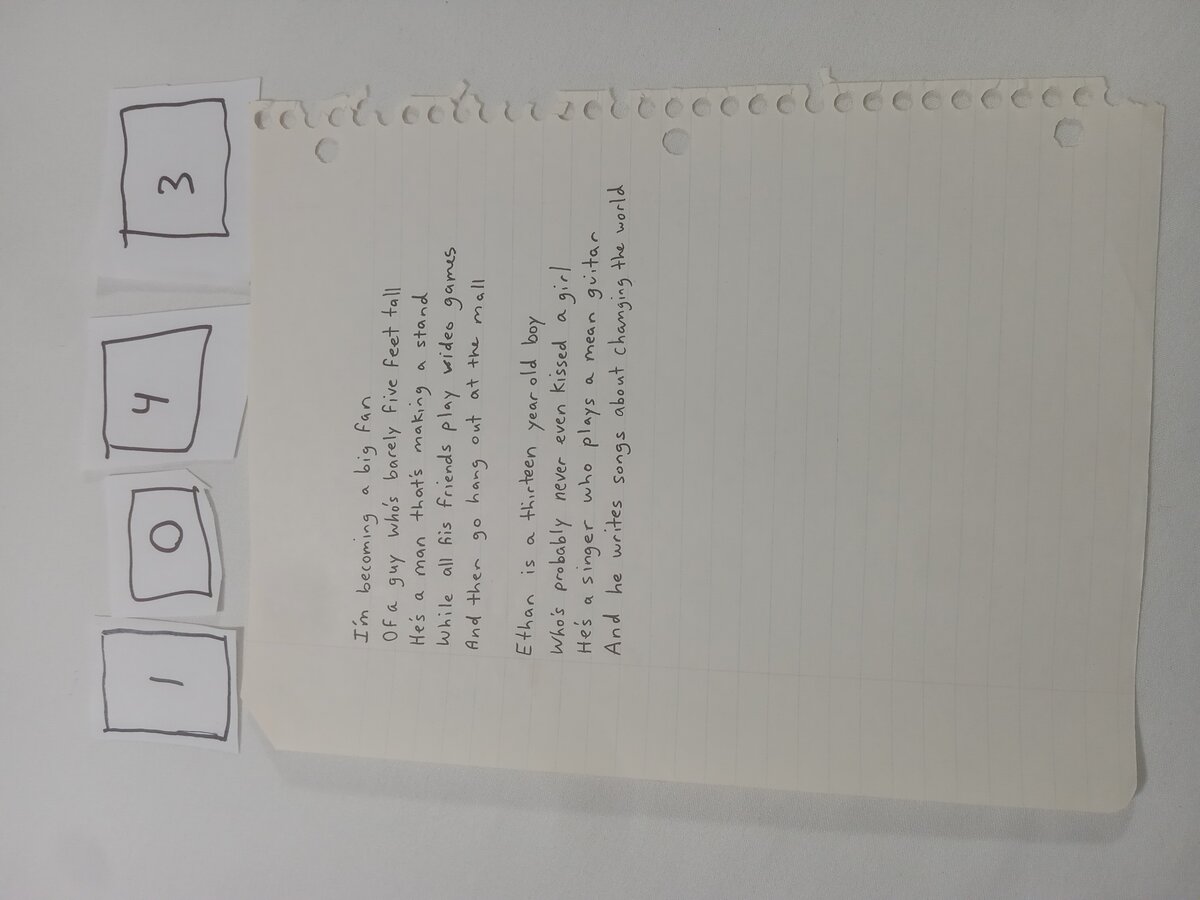 1 0 4 3
I'm becoming a big fan
Of a guy who's barely five feet tall
He's a man that's making a stand
While all his friends play video games
And then go hang out at the mall
Ethan is a thirteen year old boy
Who's probably never even kissed a girl
He's a singer who plays a mean guitar
And he writes songs about changing the world